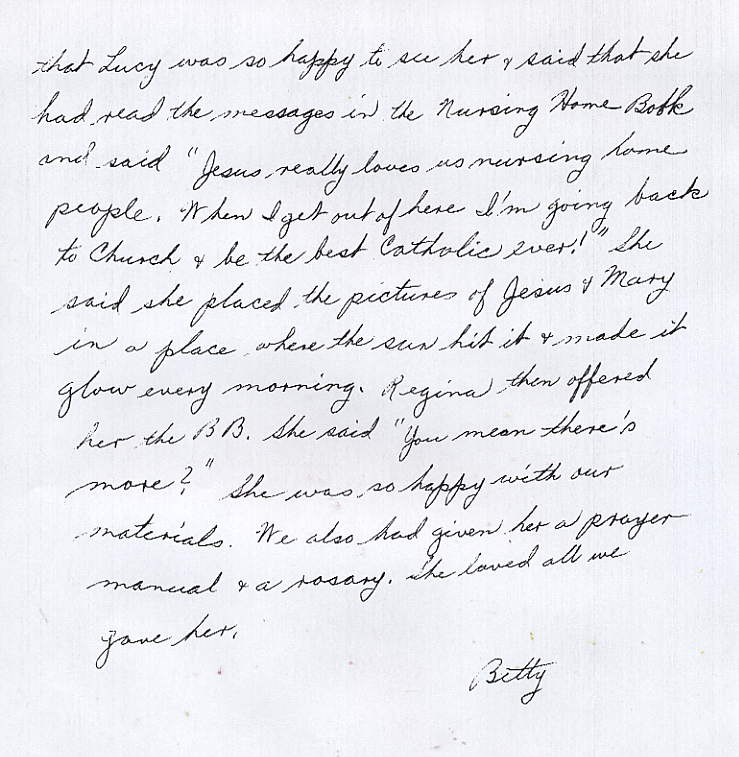 that Lucy was so happy to see her & said that she
had read the messages in the Nursing Home Book
and said "Jesus really loves us nursing home
people. When I get out of here I'm going back
to Church & be the best Catholic ever!" She
said she placed the pictures of Jesus & Mary
in a place where the sun hit it & made it
glow every morning. Regina then offered
her the BB. She said "You mean there's
more?" She was so happy with our
materials. We also had given her a prayer
manual & a rosary. She loved all we
gave her.
Betty